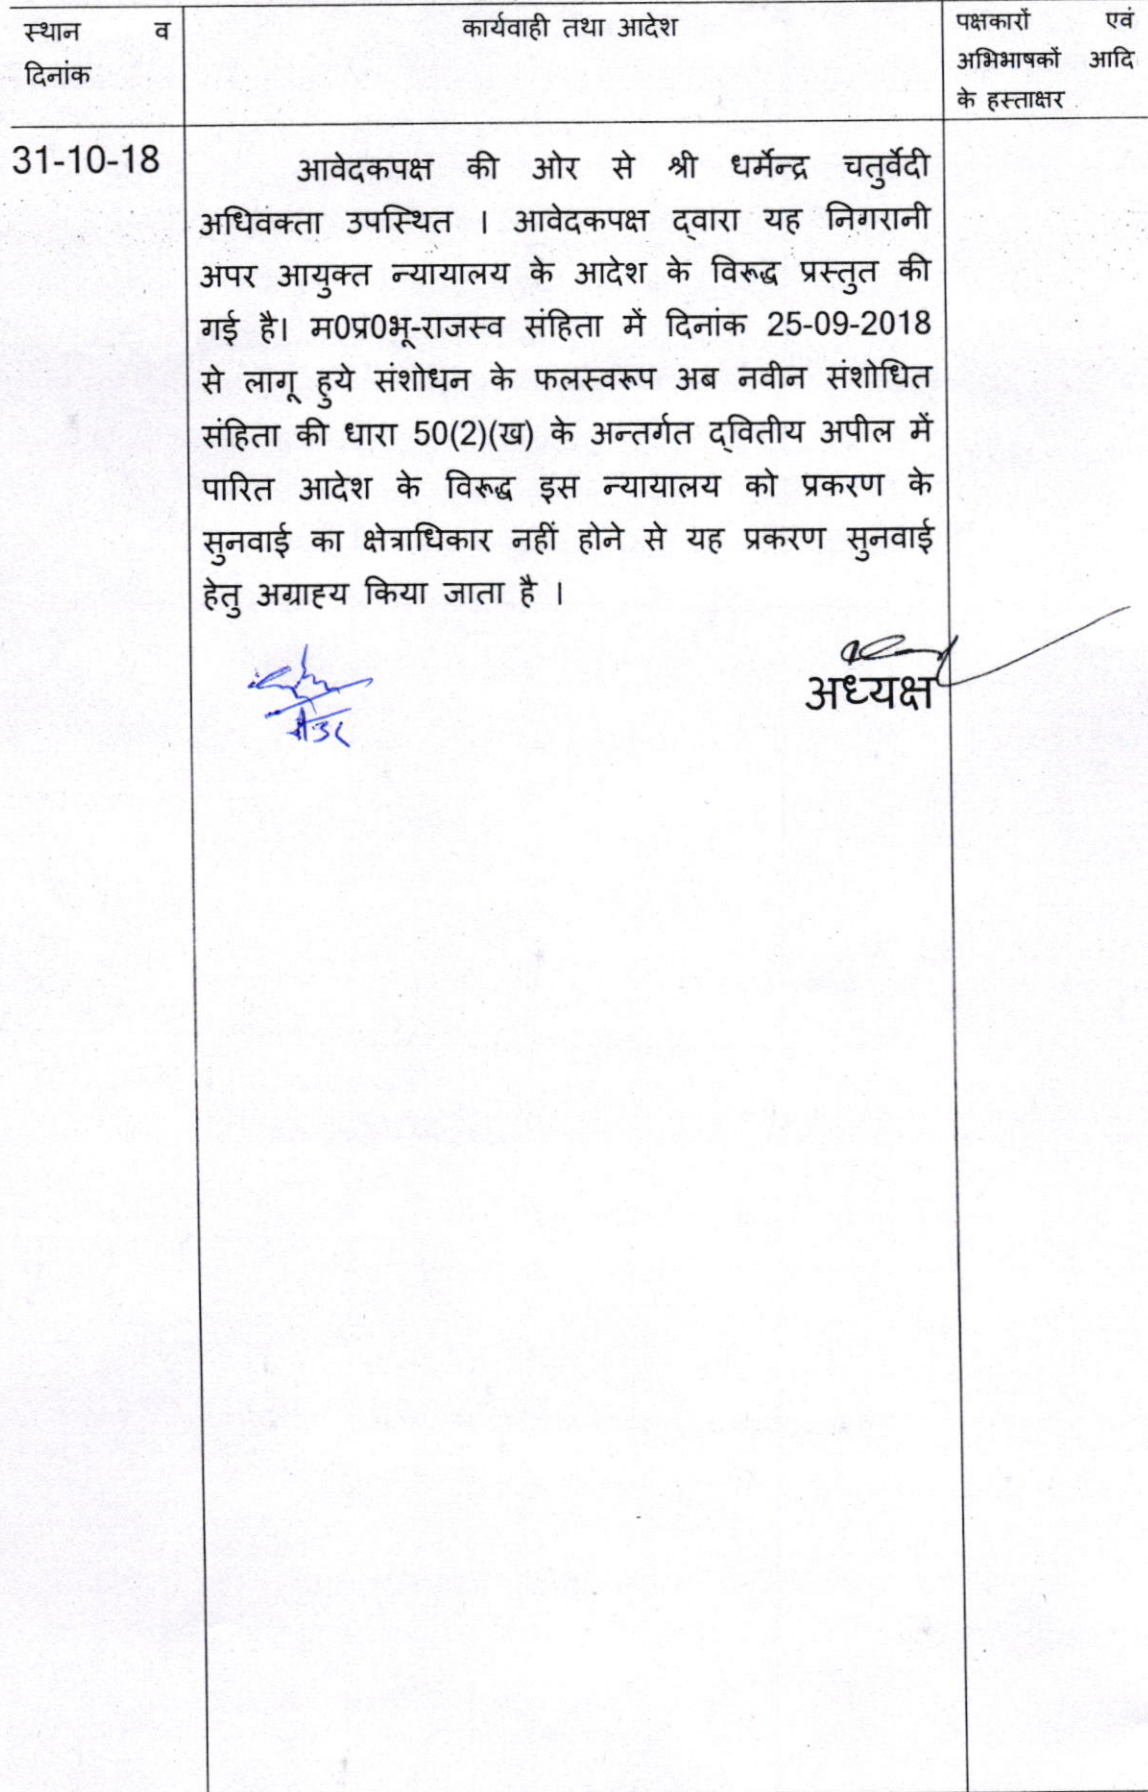 स्थान व
दिनांक
कार्यवाही तथा आदेश
पक्षकारों एवं
अभिभाषकों आदि
के हस्ताक्षर
31-10-18
आवेदकपक्ष की ओर से श्री धर्मेन्द्र चतुर्वेदी
अधिवक्ता उपस्थित । आवेदकपक्ष द्वारा यह निगरानी
अपर आयुक्त न्यायालय के आदेश के विरूद्ध प्रस्तुत की
गई है। म0प्र0भू-राजस्व संहिता में दिनांक 25-09-2018
से लागू हुये संशोधन के फलस्वरूप अब नवीन संशोधित
संहिता की धारा 50(2)(ख) के अन्तर्गत द्वितीय अपील में
पारित आदेश के विरूद्ध इस न्यायालय को प्रकरण के
सुनवाई का क्षेत्राधिकार नहीं होने से यह प्रकरण सुनवाई
हेतु अग्राह्य किया जाता है ।
अध्यक्ष